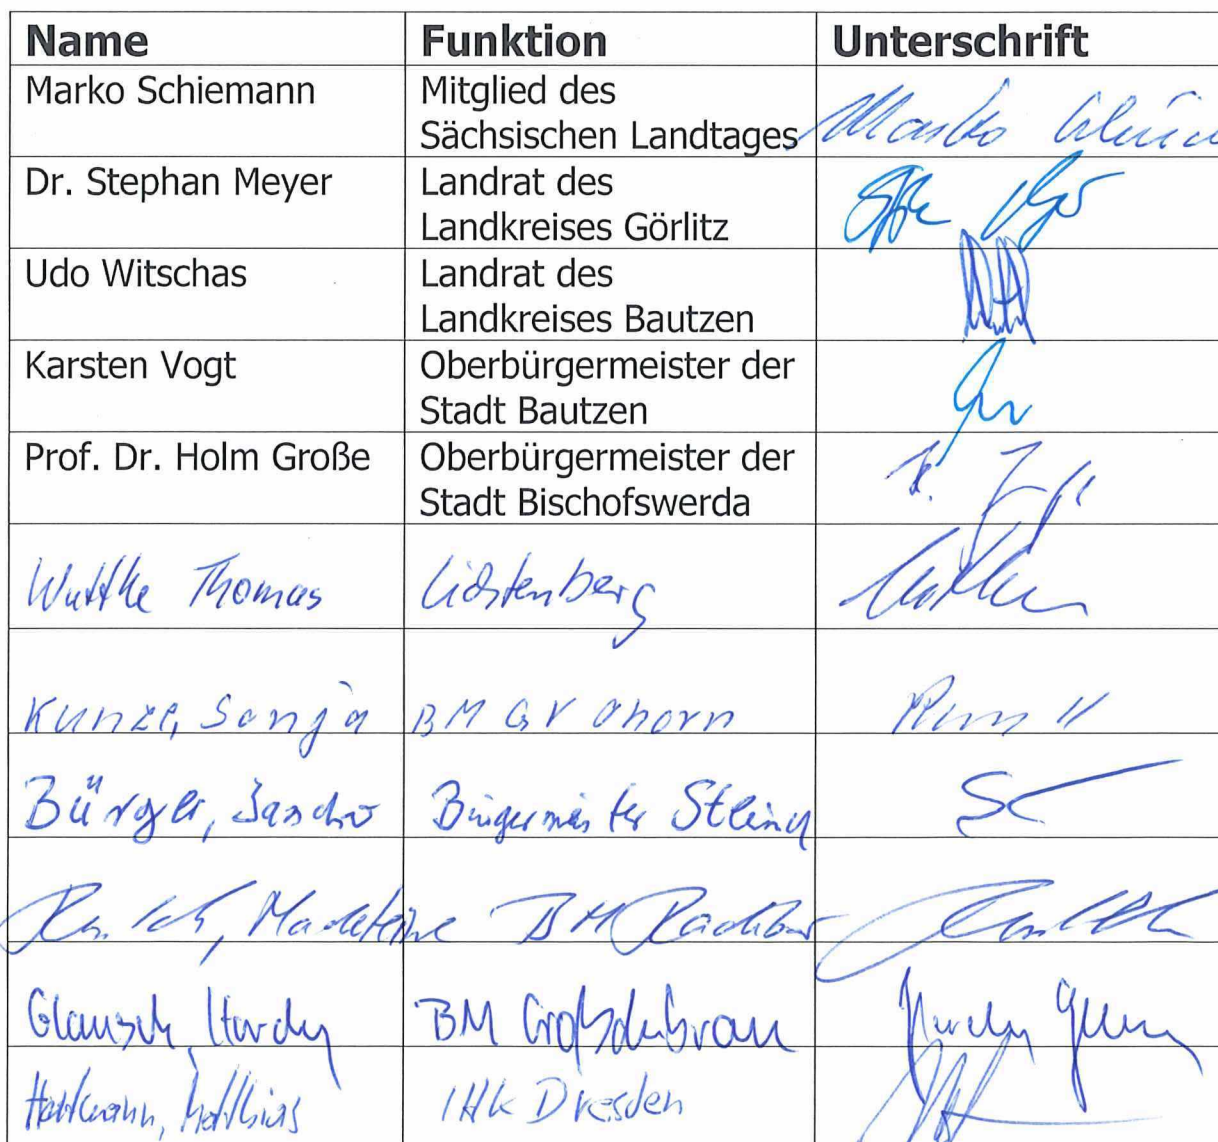 Name Funktion Unterschrift
Marko Schiemann Mitglied des
Sächsischen Landtages Marko
Dr. Stephan Meyer Landrat des
Landkreises Görlitz
Udo Witschas Landrat des
Landkreises Bautzen
Karsten Vogt Oberbürgermeister der
Stadt Bautzen
Prof. Dr. Holm Große Oberbürgermeister der
Stadt Bischofswerda
Wuttke Thomas Lichtenberg
Kunze, Sonja BM GV Ohorn
Bürger, Sascha Bürgermeister Steina
Madeleine BM Rackbur
Glausch, Hardy BM Großdubrau
Hartmann, Matthias IHK Dresden